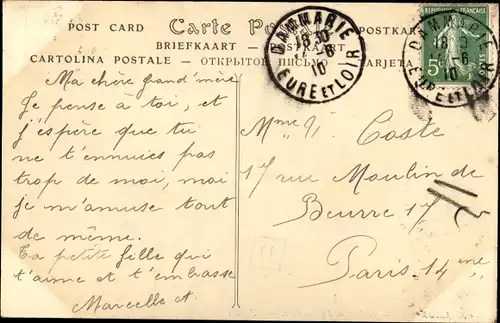 POST CARD Carte Po
BRIEFKAART
CARTOLINA POSTALE — ОТКРЫТОЕ ПИСЬМО
DAMMARIE
18 30
10
EURE ET LOIR
DAMMARIE
10
EURE ET LOIR
5c
Ma chère grand'mère
Je pense à toi, et
j'espère que tu
ne t'ennuies pas
trop de moi, moi
je m'amuse tout
de même.
Ta petite fille qui
t'aime et t'embrasse
Marcelle
Mme Vve Coste
17 rue Moulin de
Beurre 17
Paris 14me